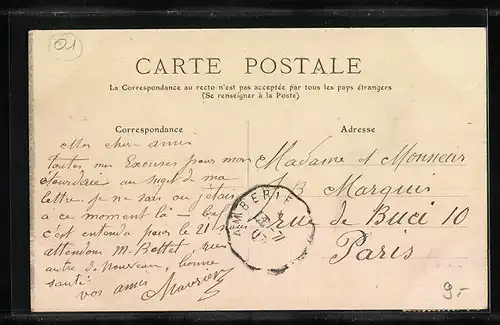 01
CARTE POSTALE
La Correspondance au recto n'est pas acceptée par tous les pays étrangers
(Se renseigner à la Poste)
Correspondance
Adresse
Mes cher amis
toutes mes Excuses pour mon
étourderie au sujet de ma
lettre je ne sais ou j'étais
a ce moment là -
c'est entendu pour le 21 nous
attendons M. Bottet, rien
autre de nouveau, bonne
santé
vos amis
Madame et Monsieur
Marquis
rue de Buci 10
Paris
AMBERIE
9.-